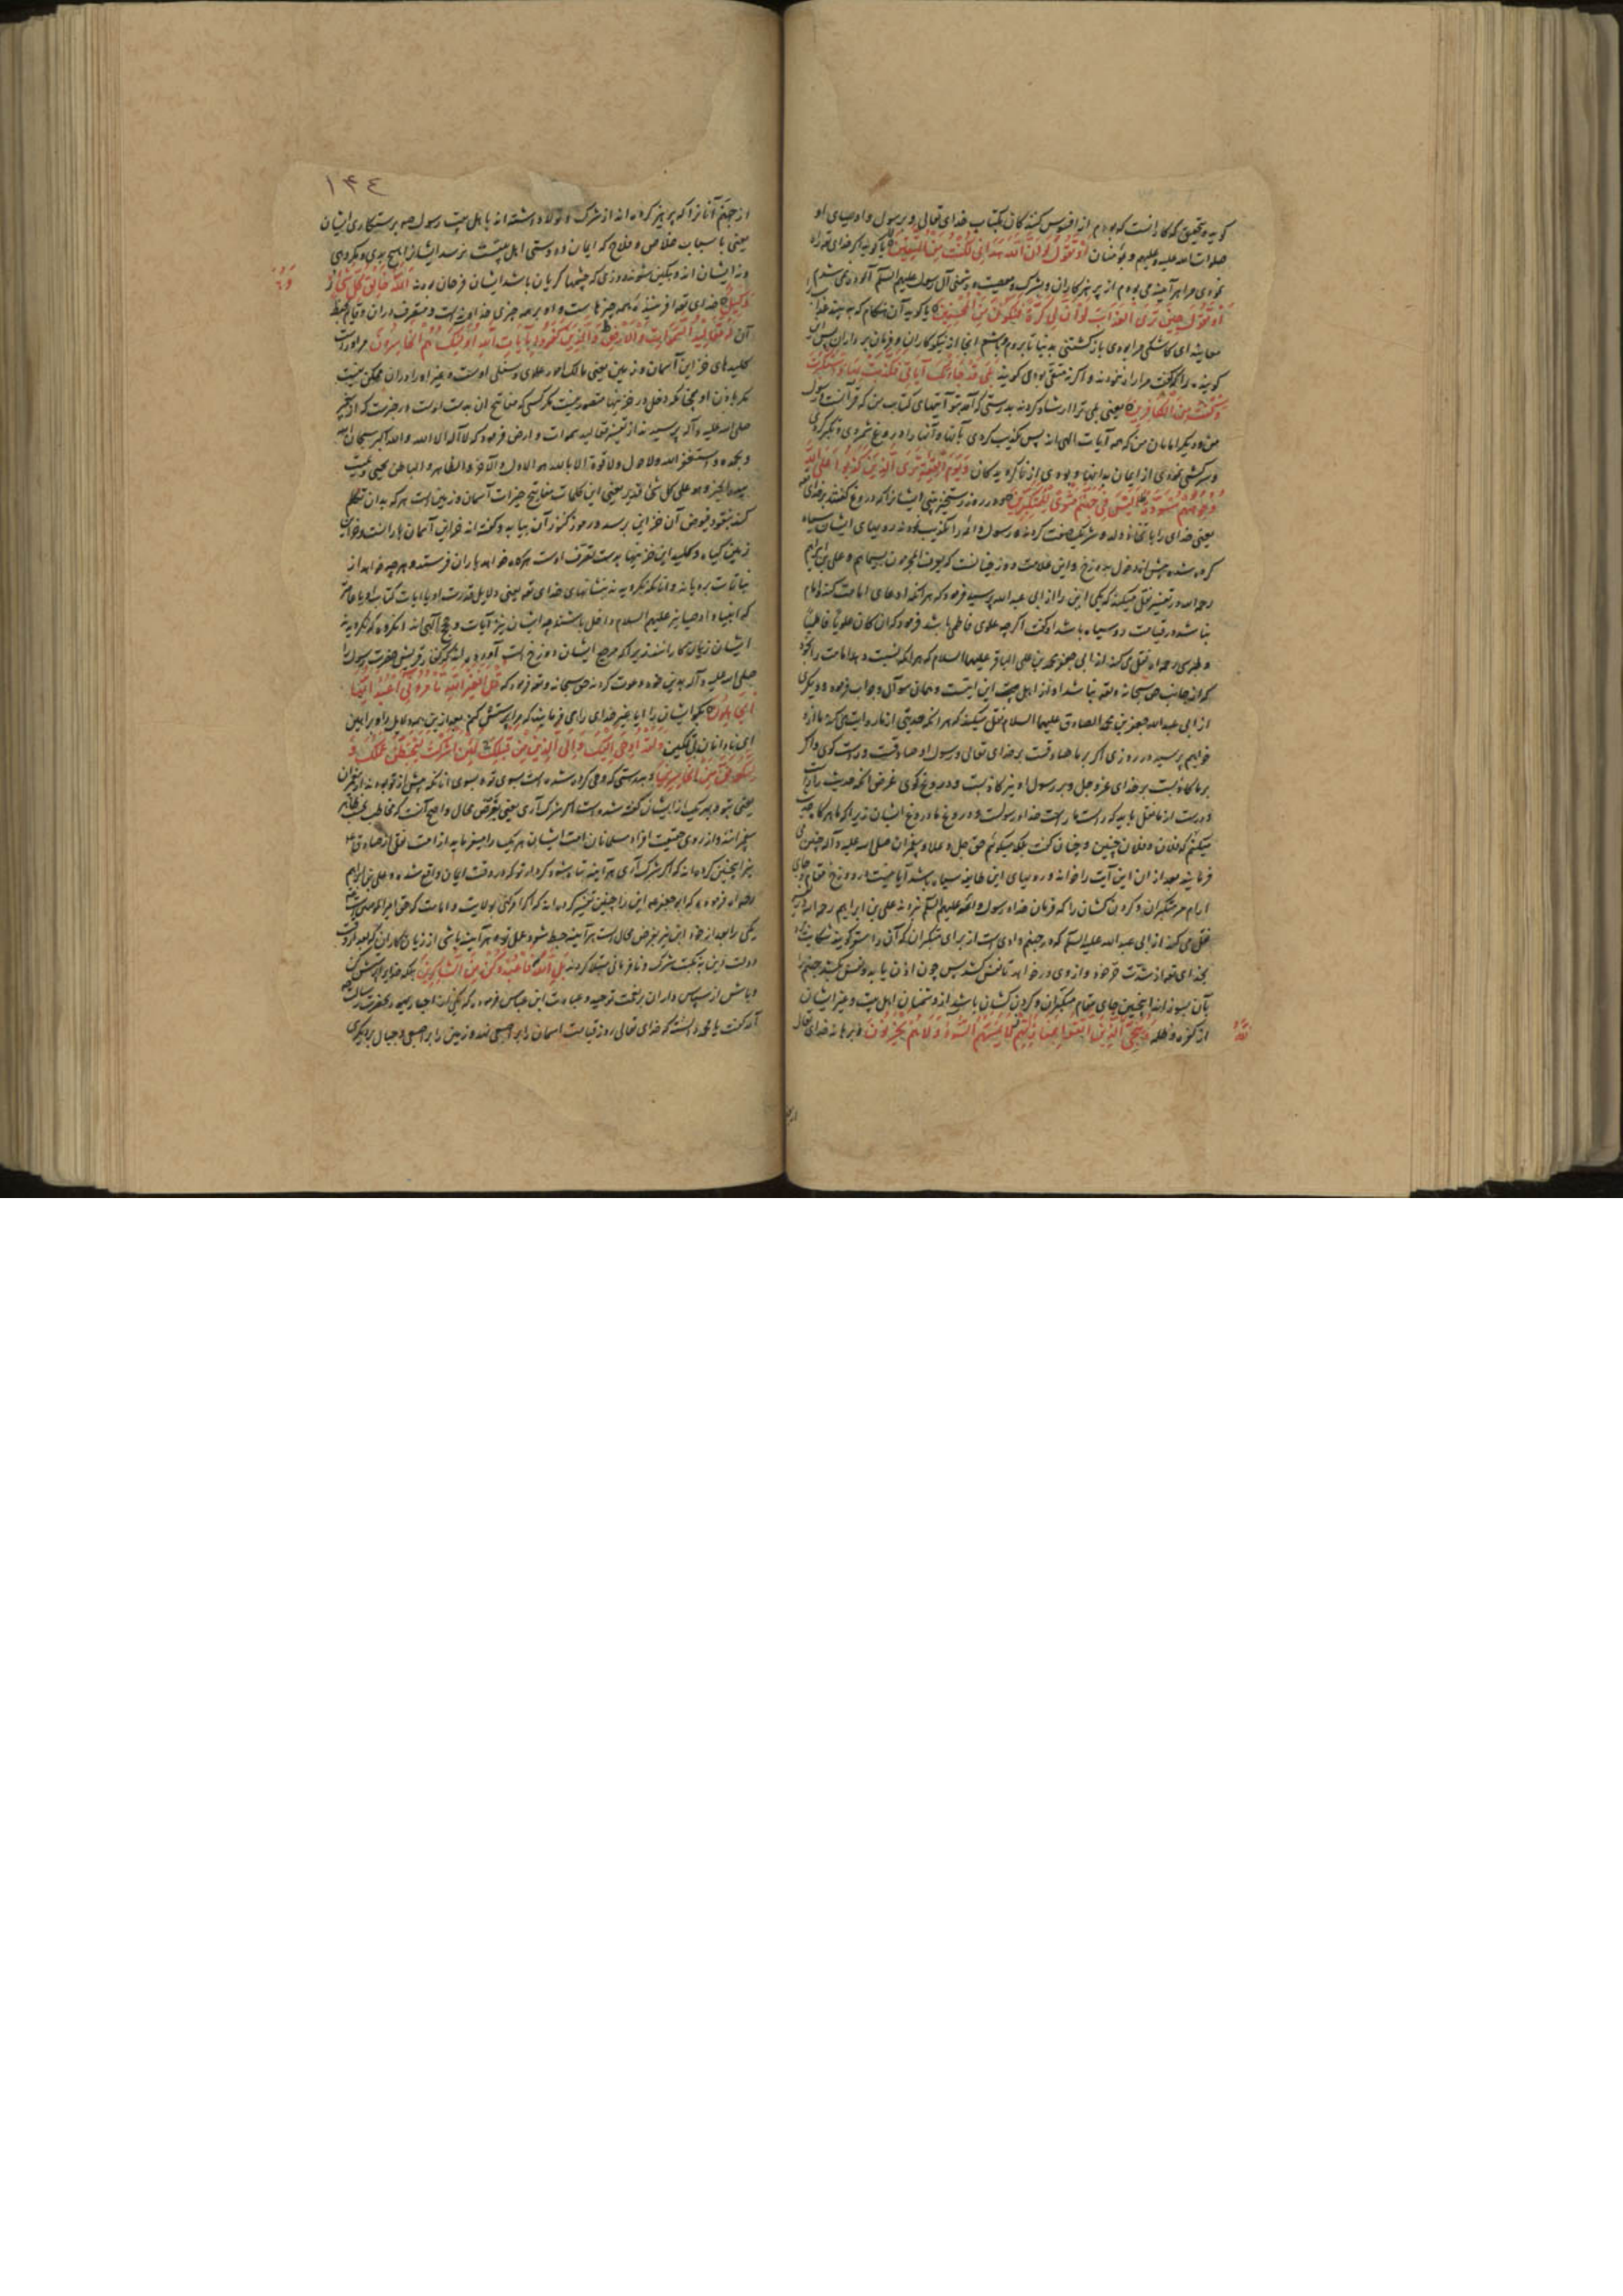 کوید و تحقیق که کار آنست که بودم از افسوس کنندکان بکتاب خدای تعالی و برسول و اوصیای او
صلوات الله علیه و علیهم و بمؤمنان أَوْ تَقُولَ لَوْ أَنَّ اللَّهَ هَدَانِي لَكُنْتُ مِنَ الْمُتَّقِينَ یا کوید اکر خدای تعالی راه
نمودی مرا هر آینه می بودم از پرهیزکاران و بشرک و معصیت و دشمنی آل رسول علیهم السلم آلوده نمی شدم
أَوْ تَقُولَ حِينَ تَرَى الْعَذَابَ لَوْ أَنَّ لِي كَرَّةً فَأَكُونَ مِنَ الْمُحْسِنِينَ یا کوید آن هنکام که به بیند عذاب
معاینه ای کاشکی مرا بودی بازکشتنی بدنیا تا بروم و باشم آنجا از نیکوکاران و فرمان برداران پس
کویند بَلَى قَدْ جَاءَتْكَ آيَاتِي فَكَذَّبْتَ بِهَا وَاسْتَكْبَرْتَ
وَكُنْتَ مِنَ الْكَافِرِينَ یعنی بلی ترا ارشاد کردند بدرستی که آمد بتو آیتهای کتاب من که قرآنست
و دیکر امامان من که همه آیات الهی اند پس تکذیب کردی بآنها و آنها را دروغ شمردی و تکبر کردی
و سرکشی نمودی از ایمان بدانها و بودی از ناکرویدکان وَيَوْمَ الْقِيَامَةِ تَرَى الَّذِينَ كَذَبُوا عَلَى اللَّهِ
وُجُوهُهُمْ مُسْوَدَّةٌ أَلَيْسَ فِي جَهَنَّمَ مَثْوًى لِلْمُتَكَبِّرِينَ و در روز رستخیز بینی ایشانرا که دروغ کفتند بر خدای
یعنی خدای را باتخاذ ولد و شریک صفت کردند و رسول و ائمه را تکذیب نمودند رویهای ایشان سیاه
کرده شده پیش از دخول بدوزخ و این علامت دوزخیانست که یعرف المجرمون بسیماهم و علی بن ابراهیم
رحمه الله در تفسیر نقل میکند که یکی این را از ابی عبدالله پرسید فرمود که هر آنکه ادعای امامت کند و امام
نباشد در قیامت روسیاه باشد او کفت اکرچه علوی فاطمی باشد فرمود که وان کان علویا فاطمیا
و طبرسی رحمه الله نقل می کند از ابی جعفر محمد بن علی الباقر علیهما السلام که هر آنکه نسبت دهد امامت را بخود
که از جانب حق سبحانه و تعالی نباشد او از اهل این آیتست و همان سؤال و جواب فرمود و دیکری
از ابی عبدالله جعفر بن محمد الصادق علیهما السلام نقل میکند که هر آنکه حدیثی از ما روایت می کند ما از او
خواهیم پرسید در روزی اکر بر ما صادقست بر خدای تعالی و رسول او صادقست و راست کوی و اکر
بر ما کاذبست بر خدای عز و جل و بر رسول او نیز کاذبست و دروغ کوی غرض آنکه حدیث
درست از ما نقل باید که راست ما راست خدا و رسولست و دروغ ما دروغ ایشان زیرا که ما هرکاه حدیث
میکنیم که فلان و فلان چنین و چنان کفت بلکه میکوئیم حق جل و علا و پیغمبران صلی الله علیه و آله چنین
فرمایند بعد از ان این آیت را خواند و رویهای این طایفه سیاه باشد آیا نیست در دوزخ مقام و جای
آرام مر متکبران و کردن کشان را که فرمان خدا و رسول و ائمه علیهم السلم نبردند علی بن ابراهیم رحمه الله
نقل می کند از ابی عبدالله علیه السلم که در جهنم وادی است از برای متکبران که آن را سقر کویند شکایت
بخدای تعالی از شدت حر خود و از وی درخواهد تا نفس کشد پس چون اذن یابد و نفس بکشد جهنم را
بآن بسوزاند اینچنین جای مقام متکبران و کردن کشان باشد از دشمنان اهل بیت و غیر ایشان
از کفره و ظلمه وَيُنَجِّي اللَّهُ الَّذِينَ اتَّقَوْا بِمَفَازَتِهِمْ لَا يَمَسُّهُمُ السُّوءُ وَلَا هُمْ يَحْزَنُونَ و برهاند خدای تعالی
١٣٤
از جهنم آنانرا که پرهیز کرده اند از شرک و تولا داشته اند باهل بیت رسول برستکاری ایشان
یعنی باسباب خلاص و فلاح که ایمان و دوستی اهل بیتست نرسد ایشانرا هیچ بدی و مکروهی
و نه ایشان اندوهکین شوند در روزی که چشمها کریان باشد ایشان فرحان بوند اللَّهُ خَالِقُ كُلِّ شَيْءٍ وَهُوَ عَلَى كُلِّ شَيْءٍ
وَكِيلٌ خدای تعالی آفریننده همه چیزهاست و او بر همه چیزی خداوند است و متصرف دران و قایم بحفظ
آن لَهُ مَقَالِيدُ السَّمَوَاتِ وَالْأَرْضِ وَالَّذِينَ كَفَرُوا بِآيَاتِ اللَّهِ أُولَئِكَ هُمُ الْخَاسِرُونَ مر اوراست
کلیدهای خزاین آسمان و زمین یعنی مالک امور علوی و سفلی اوست و غیر او را دران تمکن نیست
مکر باذن او همچنانکه دخل در خزینها متصور نیست مکر کسی که مفاتیح آن بدست اوست در خبرست که از پیغمبر
صلی الله علیه و آله پرسیدند از تفسیر مقالید سموات و ارض فرمود که لا اله الا الله والله اکبر سبحان الله
و بحمده و استغفر الله و لا حول و لا قوة الا بالله هو الاول و الآخر و الظاهر و الباطن یحیی و یمیت
بیده الخیر و هو علی کل شیء قدیر یعنی این کلمات مفاتیح خیرات آسمان و زمین است هر که بدان تکلم
کند بنقود فیوض آن خزاین برسد و رموز کنوز آن بیابد و کفته اند خزاین آسمان بارانست و خزاین
زمین کیاه و کلید این خزینها بدست تصرف اوست هرکاه خواهد باران فرستد و هرچه خواهد از
نباتات برویاند و آنانکه نکرویدند بنشانهای خدای تعالی یعنی دلایل قدرت او یا آیات کتاب او یا عامه
که انبیا و اوصیا نیز علیهم السلام داخل باشند چه ایشان نیز آیات و حجج الهی اند آن کروه که نکرویدند
ایشان زیان کارانند زیرا که مرجع ایشان دوزخ است آورده اند که کفار قریش حضرت رسول را
صلی الله علیه و آله بدین خود دعوت کردند حق سبحانه و تعالی فرمود که قُلْ أَفَغَيْرَ اللَّهِ تَأْمُرُونِّي أَعْبُدُ أَيُّهَا
الْجَاهِلُونَ بکو ایشان را آیا بغیر خدای را می فرمائید که من پرستش کنم بعد از این همه دلایل و براهین
ای نادانان بی تمکین وَلَقَدْ أُوحِيَ إِلَيْكَ وَإِلَى الَّذِينَ مِنْ قَبْلِكَ لَئِنْ أَشْرَكْتَ لَيَحْبَطَنَّ عَمَلُكَ وَ
لَتَكُونَنَّ مِنَ الْخَاسِرِينَ و بدرستی که وحی کرده شده است بسوی تو و بسوی آنانکه پیش از تو بودند از پیغمبران
یعنی بتو و بهر یک از ایشان کفته شده است اکر شرک آری یعنی بفرض محال و اصح آنست که مخاطب بظاهر
پیغمبرانند و از روی حقیقت افراد مسلمانان امت ایشان هر یک را میفرماید از امت
اینچنین کرده اند که اکر شرک آری هر آینه تباه شود کردار تو که در وقت ایمان واقع شده و علی بن ابراهیم
فرموده که ابو جعفر این را چنین تفسیر کرده اند که اکر امر کنی بولایت و امامت که حق امیر المؤمنین است
دیکری را بعد از خود این نیز بفرض محال است هر آینه حبط شود عمل تو و هر آینه باشی از زیان کاران
دولت این به نکبت شرک و نافرمانی مبتلا کردند بَلِ اللَّهَ فَاعْبُدْ وَكُنْ مِنَ الشَّاكِرِينَ بلکه خدایرا پرستش کن
و باش از سپاس داران بر نعمت توحید و عبادت ابن عباس فرموده که یکی از احبار یهود بحضرت رسالت
آمد کفت یا محمد دانسته که خدای تعالی روز قیامت آسمان را بر اصبعی نهد و زمین را بر اصبعی و جبال بر دیکری